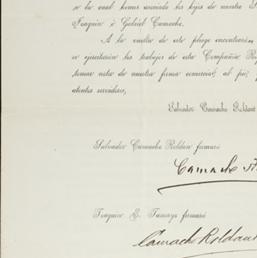 se la cual hemos asociado los hijos de nuestro S
Joaquín i Gabriel Camacho.
A la vuelta de este pliego encontrará
se ejecutarán los trabajos de esta Compañía. Ro
tomar nota de nuestra firma comercial, al pié,
atentos servidores,
Salvador Camacho Roldan
Salvador Camacho Roldan firmará
Camacho
Joaquin E. Tamayo firmará
Camacho Roldan